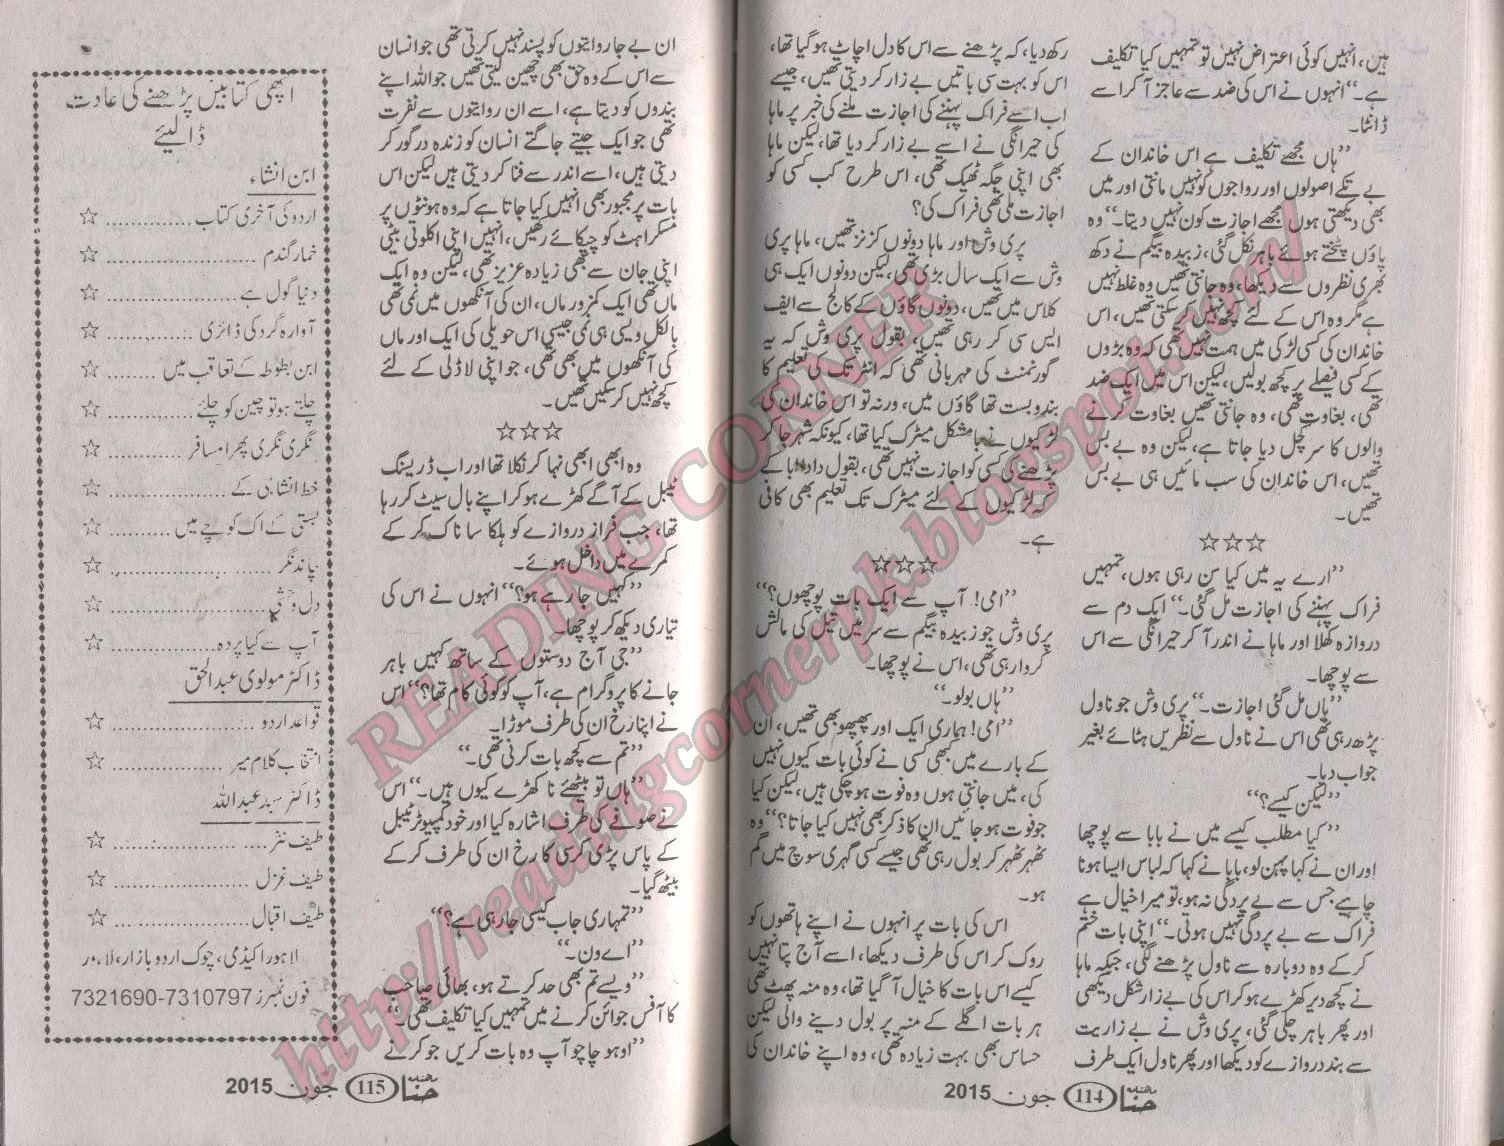 ہیں، انہیں کوئی اعتراض نہیں تو تمہیں کیا تکلیف
ہے۔‘‘ انہوں نے اس کی ضد سے عاجز آ کر اسے
ڈانٹا۔
’’ہاں مجھے تکلیف ہے اس خاندان کے
بے تکے اصولوں اور رواجوں کو نہیں مانتی اور میں
بھی دیکھتی ہوں مجھے اجازت کون نہیں دیتا۔‘‘ وہ
پاؤں پٹختے ہوئے باہر نکل گئی، زبیدہ بیگم نے دکھ
بھری نظروں سے دیکھا، وہ جانتی تھیں وہ غلط نہیں
ہے مگر وہ اس کے لئے کچھ نہیں کر سکتی تھیں، اس
خاندان کی کسی لڑکی میں ہمت نہیں تھی کہ وہ بڑوں
کے کسی فیصلے پر کچھ بولیں، لیکن اس میں ایک ضد
تھی، بغاوت تھی، وہ جانتی تھیں بغاوت کرنے
والوں کا سر کچل دیا جاتا ہے، لیکن وہ بے بس
تھیں، اس خاندان کی سب مائیں ہی بے بس
تھیں۔
☆☆☆
’’ارے یہ میں کیا سن رہی ہوں، تمہیں
فراک پہننے کی اجازت مل گئی۔‘‘ ایک دم سے
دروازہ کھلا اور ماہا نے اندر آ کر حیرانگی سے اس
سے پوچھا۔
’’ہاں مل گئی اجازت۔‘‘ پری وش جو ناول
پڑھ رہی تھی اس نے ناول سے نظریں ہٹائے بغیر
جواب دیا۔
’’لیکن کیسے؟‘‘
’’کیا مطلب کیسے میں نے بابا سے پوچھا
اور ان نے کہا پہن لو، بابا نے کہا کہ لباس ایسا ہونا
چاہیے جس سے بے پردگی نہ ہو، تو میرا خیال ہے
فراک سے بے پردگی نہیں ہوتی۔‘‘ اپنی بات ختم
کر کے وہ دوبارہ سے ناول پڑھنے لگی، جبکہ ماہا
نے کچھ دیر کھڑے ہو کر اس کی بے زار شکل دیکھی
اور پھر باہر چلی گئی، پری وش نے بے زاریت
سے بند دروازے کو دیکھا اور پھر ناول ایک طرف
رکھ دیا، کہ پڑھنے سے اس کا دل اچاٹ ہو گیا تھا،
اس کو بہت سی باتیں بے زار کر دیتی تھیں، جیسے
اب اسے فراک پہننے کی اجازت ملنے کی خبر پر ماہا
کی حیرانگی نے اسے بے زار کر دیا تھا، لیکن ماہا
بھی اپنی جگہ ٹھیک تھی، اس طرح کب کسی کو
اجازت ملی تھی فراک کی؟
پری وش اور ماہا دونوں کزنز تھیں، ماہا پری
وش سے ایک سال بڑی تھی، لیکن دونوں ایک ہی
کلاس میں تھیں، دونوں گاؤں کے کالج سے ایف
ایس سی کر رہی تھیں، بقول پری وش کہ یہ
گورنمنٹ کی مہربانی تھی کہ انٹر تک کی تعلیم کا
بندوبست تھا گاؤں میں، ورنہ تو اس خاندان کی
لڑکیوں نے بامشکل میٹرک کیا تھا، کیونکہ شہر جا کر
پڑھنے کی کسی کو اجازت نہیں تھی، بقول دادا بابا کے
کہ لڑکیوں کے لئے میٹرک تک تعلیم بھی کافی
ہے۔
☆☆☆
’’امی! آپ سے ایک بات پوچھوں؟‘‘
پری وش جو زبیدہ بیگم سے سر میں تیل کی مالش
کروا رہی تھی، اس نے پوچھا۔
’’ہاں بولو۔‘‘
’’امی! ہماری ایک اور پھپھو بھی تھیں، ان
کے بارے میں کبھی کسی نے کوئی بات کیوں نہیں
کی، میں جانتی ہوں وہ فوت ہو چکی ہیں، لیکن کیا
جو فوت ہو جائیں ان کا ذکر بھی نہیں کیا جاتا؟‘‘ وہ
ٹھہر ٹھہر کر بول رہی تھی جیسے کسی گہری سوچ میں گم
ہو۔
اس کی بات پر انہوں نے اپنے ہاتھوں کو
روک کر اس کی طرف دیکھا، اسے آج پتا نہیں
کیسے اس بات کا خیال آ گیا تھا، وہ منہ پھٹ تھی
ہر بات اگلے کے منہ پر بول دینے والی لیکن
حساس بھی بہت زیادہ تھی، وہ اپنے خاندان کی
ماہنامہ حنا 114 جون 2015
ان بے جا روایتوں کو پسند نہیں کرتی تھی جو انسان
سے اس کے وہ حق بھی چھین لیتی تھیں جو اللہ اپنے
بندوں کو دیتا ہے، اسے ان روایتوں سے نفرت
تھی جو ایک جیتے جاگتے انسان کو زندہ درگور کر
دیتی ہیں، اسے اندر سے فنا کر دیتی ہیں لیکن اس
بات پر مجبور بھی انہیں کیا جاتا ہے کہ وہ ہونٹوں پر
مسکراہٹ کو چپکائے رکھیں، انہیں اپنی اکلوتی بیٹی
اپنی جان سے بھی زیادہ عزیز تھی، لیکن وہ ایک
ماں تھی ایک کمزور ماں، ان کی آنکھوں میں نمی تھی
بالکل ویسی ہی نمی جیسی اس حویلی کی ایک اور ماں
کی آنکھوں میں بھی تھی، جو اپنی لاڈلی کے لئے
کچھ نہیں کر سکیں تھیں۔
☆☆☆
وہ ابھی ابھی نہا کر نکلا تھا اور اب ڈریسنگ
ٹیبل کے آگے کھڑے ہو کر اپنے بال سیٹ کر رہا
تھا، جب فراز دروازے کو ہلکا سا ناک کر کے
کمرے میں داخل ہوئے۔
’’کہیں جا رہے ہو؟‘‘ انہوں نے اس کی
تیاری دیکھ کر پوچھا۔
’’جی آج دوستوں کے ساتھ کہیں باہر
جانے کا پروگرام ہے، آپ کو کوئی کام تھا؟‘‘ اس
نے اپنا رخ ان کی طرف موڑا۔
’’تم سے کچھ بات کرنی تھی۔‘‘
’’ہاں تو بیٹھئے نا کھڑے کیوں ہیں۔‘‘ اس
نے صوفے کی طرف اشارہ کیا اور خود کمپیوٹر ٹیبل
کے پاس پڑی کرسی کا رخ ان کی طرف کر کے
بیٹھ گیا۔
’’تمہاری جاب کیسی جا رہی ہے؟‘‘
’’اے ون۔‘‘
’’ویسے تم بھی حد کرتے ہو، بھائی صاحب
کا آفس جوائن کرنے میں تمہیں کیا تکلیف تھی۔‘‘
’’اوہو چاچو آپ وہ بات کریں جو کرنے
اچھی کتابیں پڑھنے کی عادت
ڈالیئے
ابن انشاء
اردو کی آخری کتاب .............. ☆
خمار گندم .............. ☆
دنیا گول ہے .............. ☆
آوارہ گرد کی ڈائری .............. ☆
ابن بطوطہ کے تعاقب میں ......... ☆
چلتے ہو تو چین کو چلئے .............. ☆
نگری نگری پھرا مسافر ............ ☆
خط انشا جی کے .............. ☆
بستی کے اک کوچے میں .......... ☆
چاند نگر .............. ☆
دل وحشی .............. ☆
آپ سے کیا پردہ .............. ☆
ڈاکٹر مولوی عبدالحق
قواعد اردو .............. ☆
انتخاب کلام میر .............. ☆
ڈاکٹر سید عبداللہ
طیف نثر .............. ☆
طیف غزل .............. ☆
طیف اقبال .............. ☆
لاہور اکیڈمی، چوک اردو بازار، لاہور
فون نمبرز 7310797-7321690
ماہنامہ حنا 115 جون 2015
READING CORNER
http://readingcornerpk.blogspot.com/